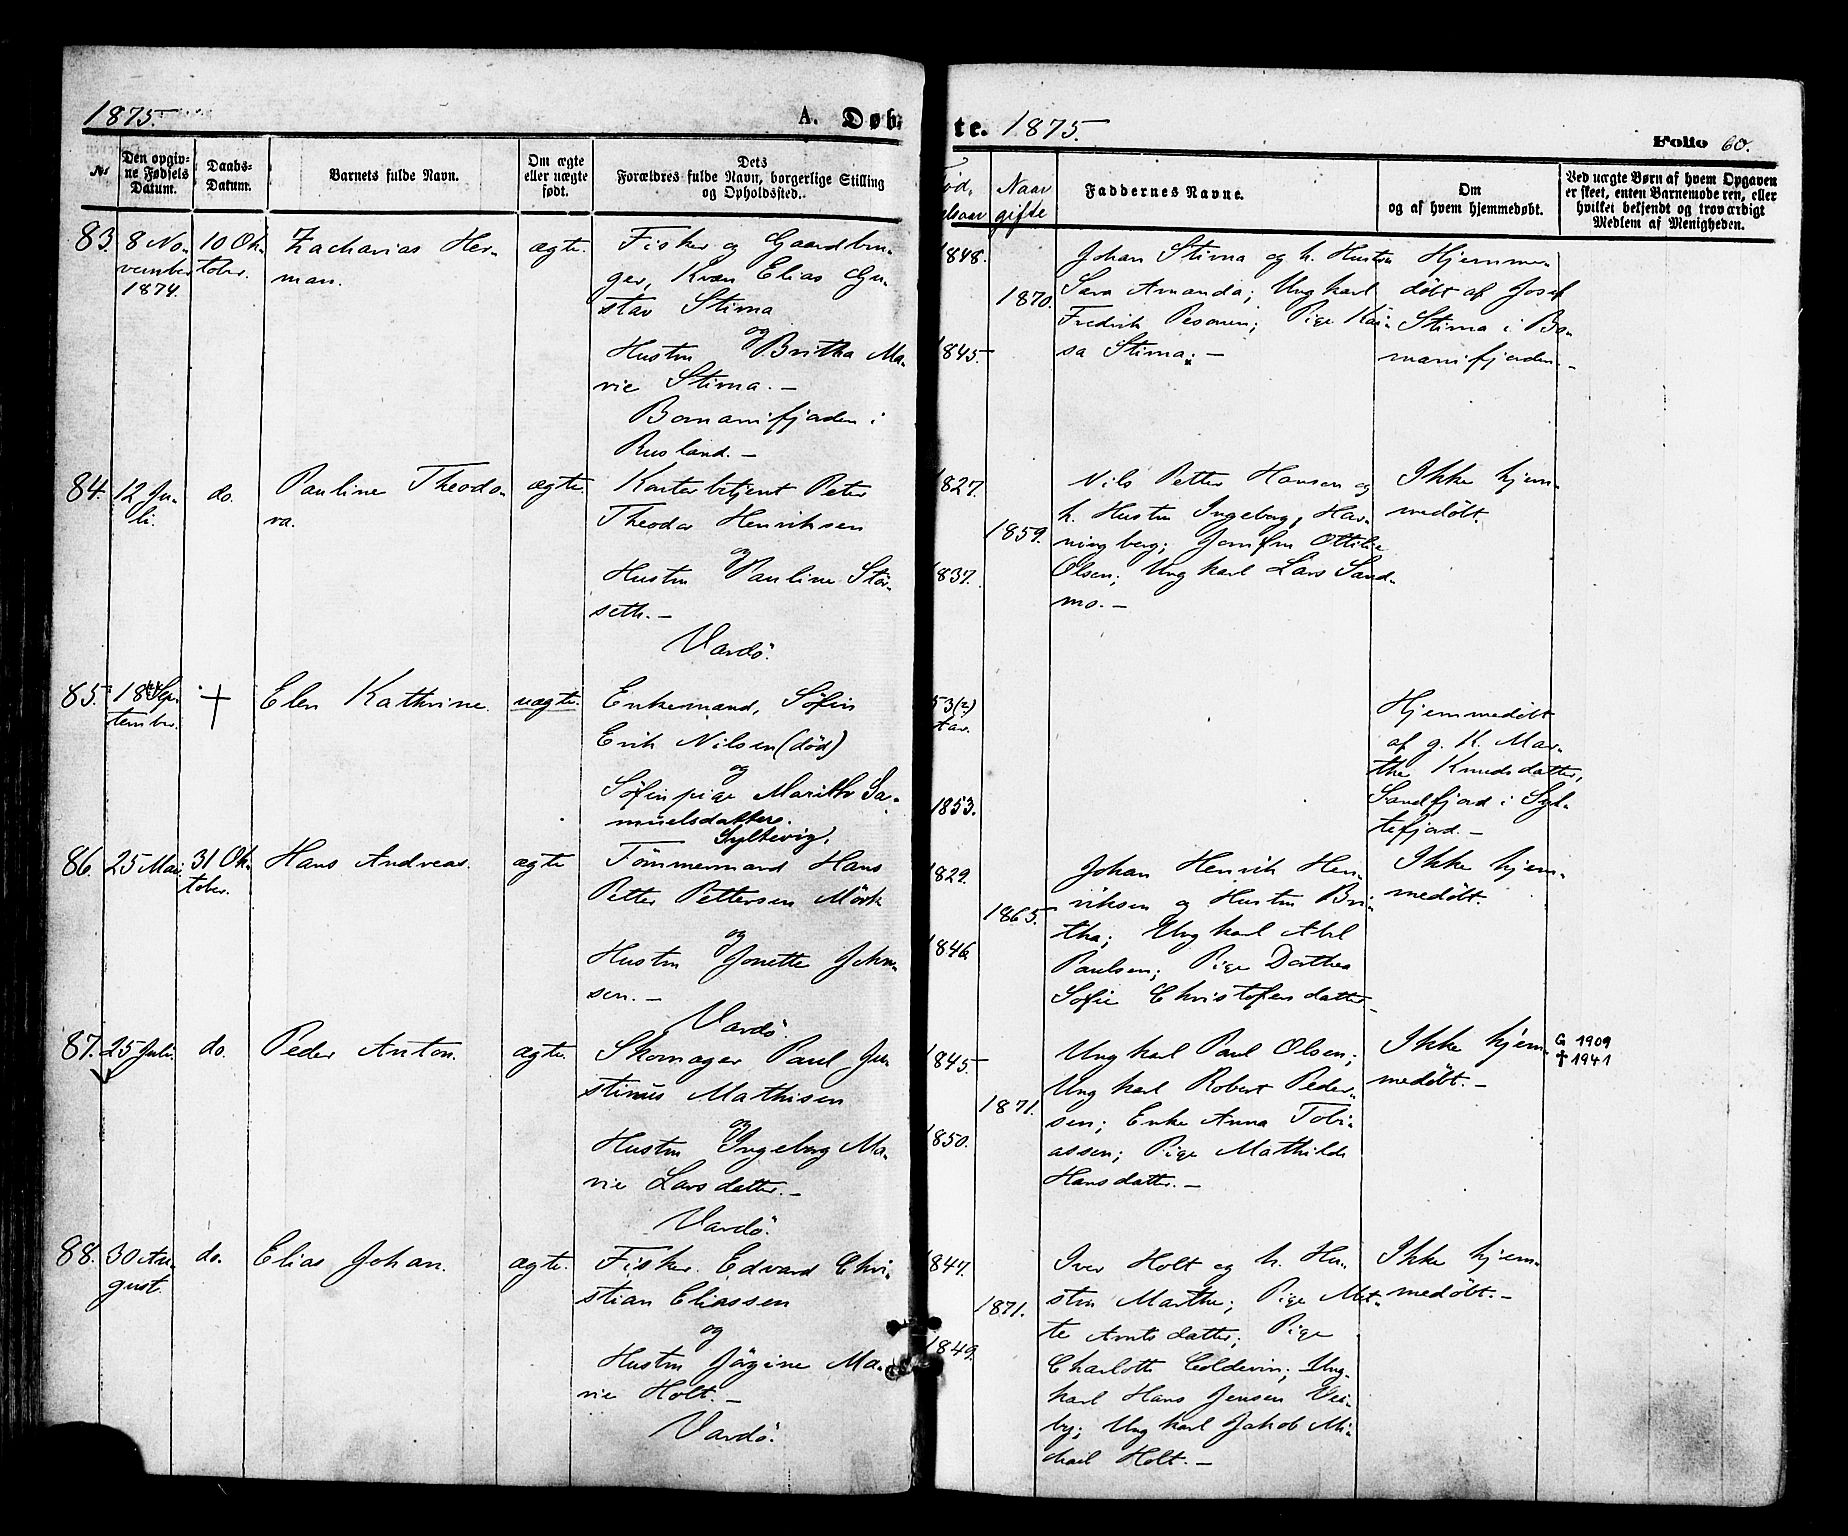 1875.
A. Døb-
te. 1875.
Folio 60.
Nr
Den opgiv-
ne Fødsels
Datum.
Daabs-
Datum.
Barnets fulde Navn.
Om ægte
eller uægte
født.
Dets
Forældres fulde Navn, borgerlige Stilling
og Opholdssted.
Fød-
elsaar
Naar
gifte
Faddernes Navne.
Om
og af hvem hjemmedøbt.
Ved uægte Børn af hvem Opgaven
er skeet, enten Barnemoderen, eller
hvilket bekjendt og troværdigt
Medlem af Menigheden.
83.
8 No-
vember
1874.
10 Ok-
tober.
Zacharias Her-
man.
ægte.
Fisker og Gaardbru-
ger, Kvæn Elias Gu-
stav Stima
og
Hustru Britha Ma-
rie Stima. -
Bomanifjorden i
Rusland. -
1848.
1870.
1845.
Johan Stima og h. Hustru
Sara Amanda; Ungkarl
Fredrik Pesonen; Pige Kai-
sa Stima. -
Hjemme-
døbt af Josef
Stima i Bo-
manifjorden. -
84.
12 Ju-
li.
do.
Pauline Theodo-
ra.
ægte.
Kontorbetjent Peter
Theodor Henriksen
og
Hustru Pauline Stör-
seth. -
Vardö.
1827.
1859.
1837.
Nils Petter Hansen og
h. Hustru Ingeborg, Har-
ningberg; Jomfru Ottilie
Olsen; Ungkarl Lars Sand-
mo. -
Ikke hjem-
medöbt.
85.
18 Sep-
tember.
†
Elen Kathrine.
uægte.
Enkemand, Söfin
Erik Nilsen (död)
og
Söfinpige Marith Sa-
muelsdatter.
Syltevig.
53(?)
Aar.
1853.
Hjemmedöbt
af g. K. Mar-
the Knudsdatter,
Sandfjord i Syl-
tefjord. -
86.
25 Mai.
31 Ok-
tober.
Hans Andreas.
ægte
Tömmermand Hans
Petter Pettersen Mörk
og
Hustru Jonette John-
sen. -
Vardö.
1829.
1865.
1846
Johan Henrik Hen-
riksen og Hustru Bri-
tha; Ungkarl Abel
Paulsen; Pige Dorthea
Sofie Christofersdatter
Ikke hjem-
medöbt.
87.
25 Juli.
do.
Peder Anton.
ægte.
Skomager Paul Ju-
stinus Mathisen
og
Hustru Ingeborg Ma-
rie Larsdatter. -
Vardö.
1845.
1871.
1850.
Ungkarl Paul Olsen;
Ungkarl Robert Peder-
sen; Enke Anna Tobi-
assen; Pige Mathilde
Hansdatter. -
Ikke hjem-
medöbt. -
G 1909
† 1941
88.
30 Au-
gust.
do.
Elias Johan.
ægte.
Fisker Edvard Chri-
stian Eliassen
og
Hustru Jörgine Ma-
rie Holt. -
Vardö.
1847.
1871.
1849.
Iver Holt og h. Hu-
stru Marthe; Pige Met-
te Arntsdatter; Pige
Charlotte Coldevin; Ung-
karl Hans Jensen Vis-
by; Ungkarl Jakob Mi-
chael Holt. -
Ikke hjem-
medöbt. -